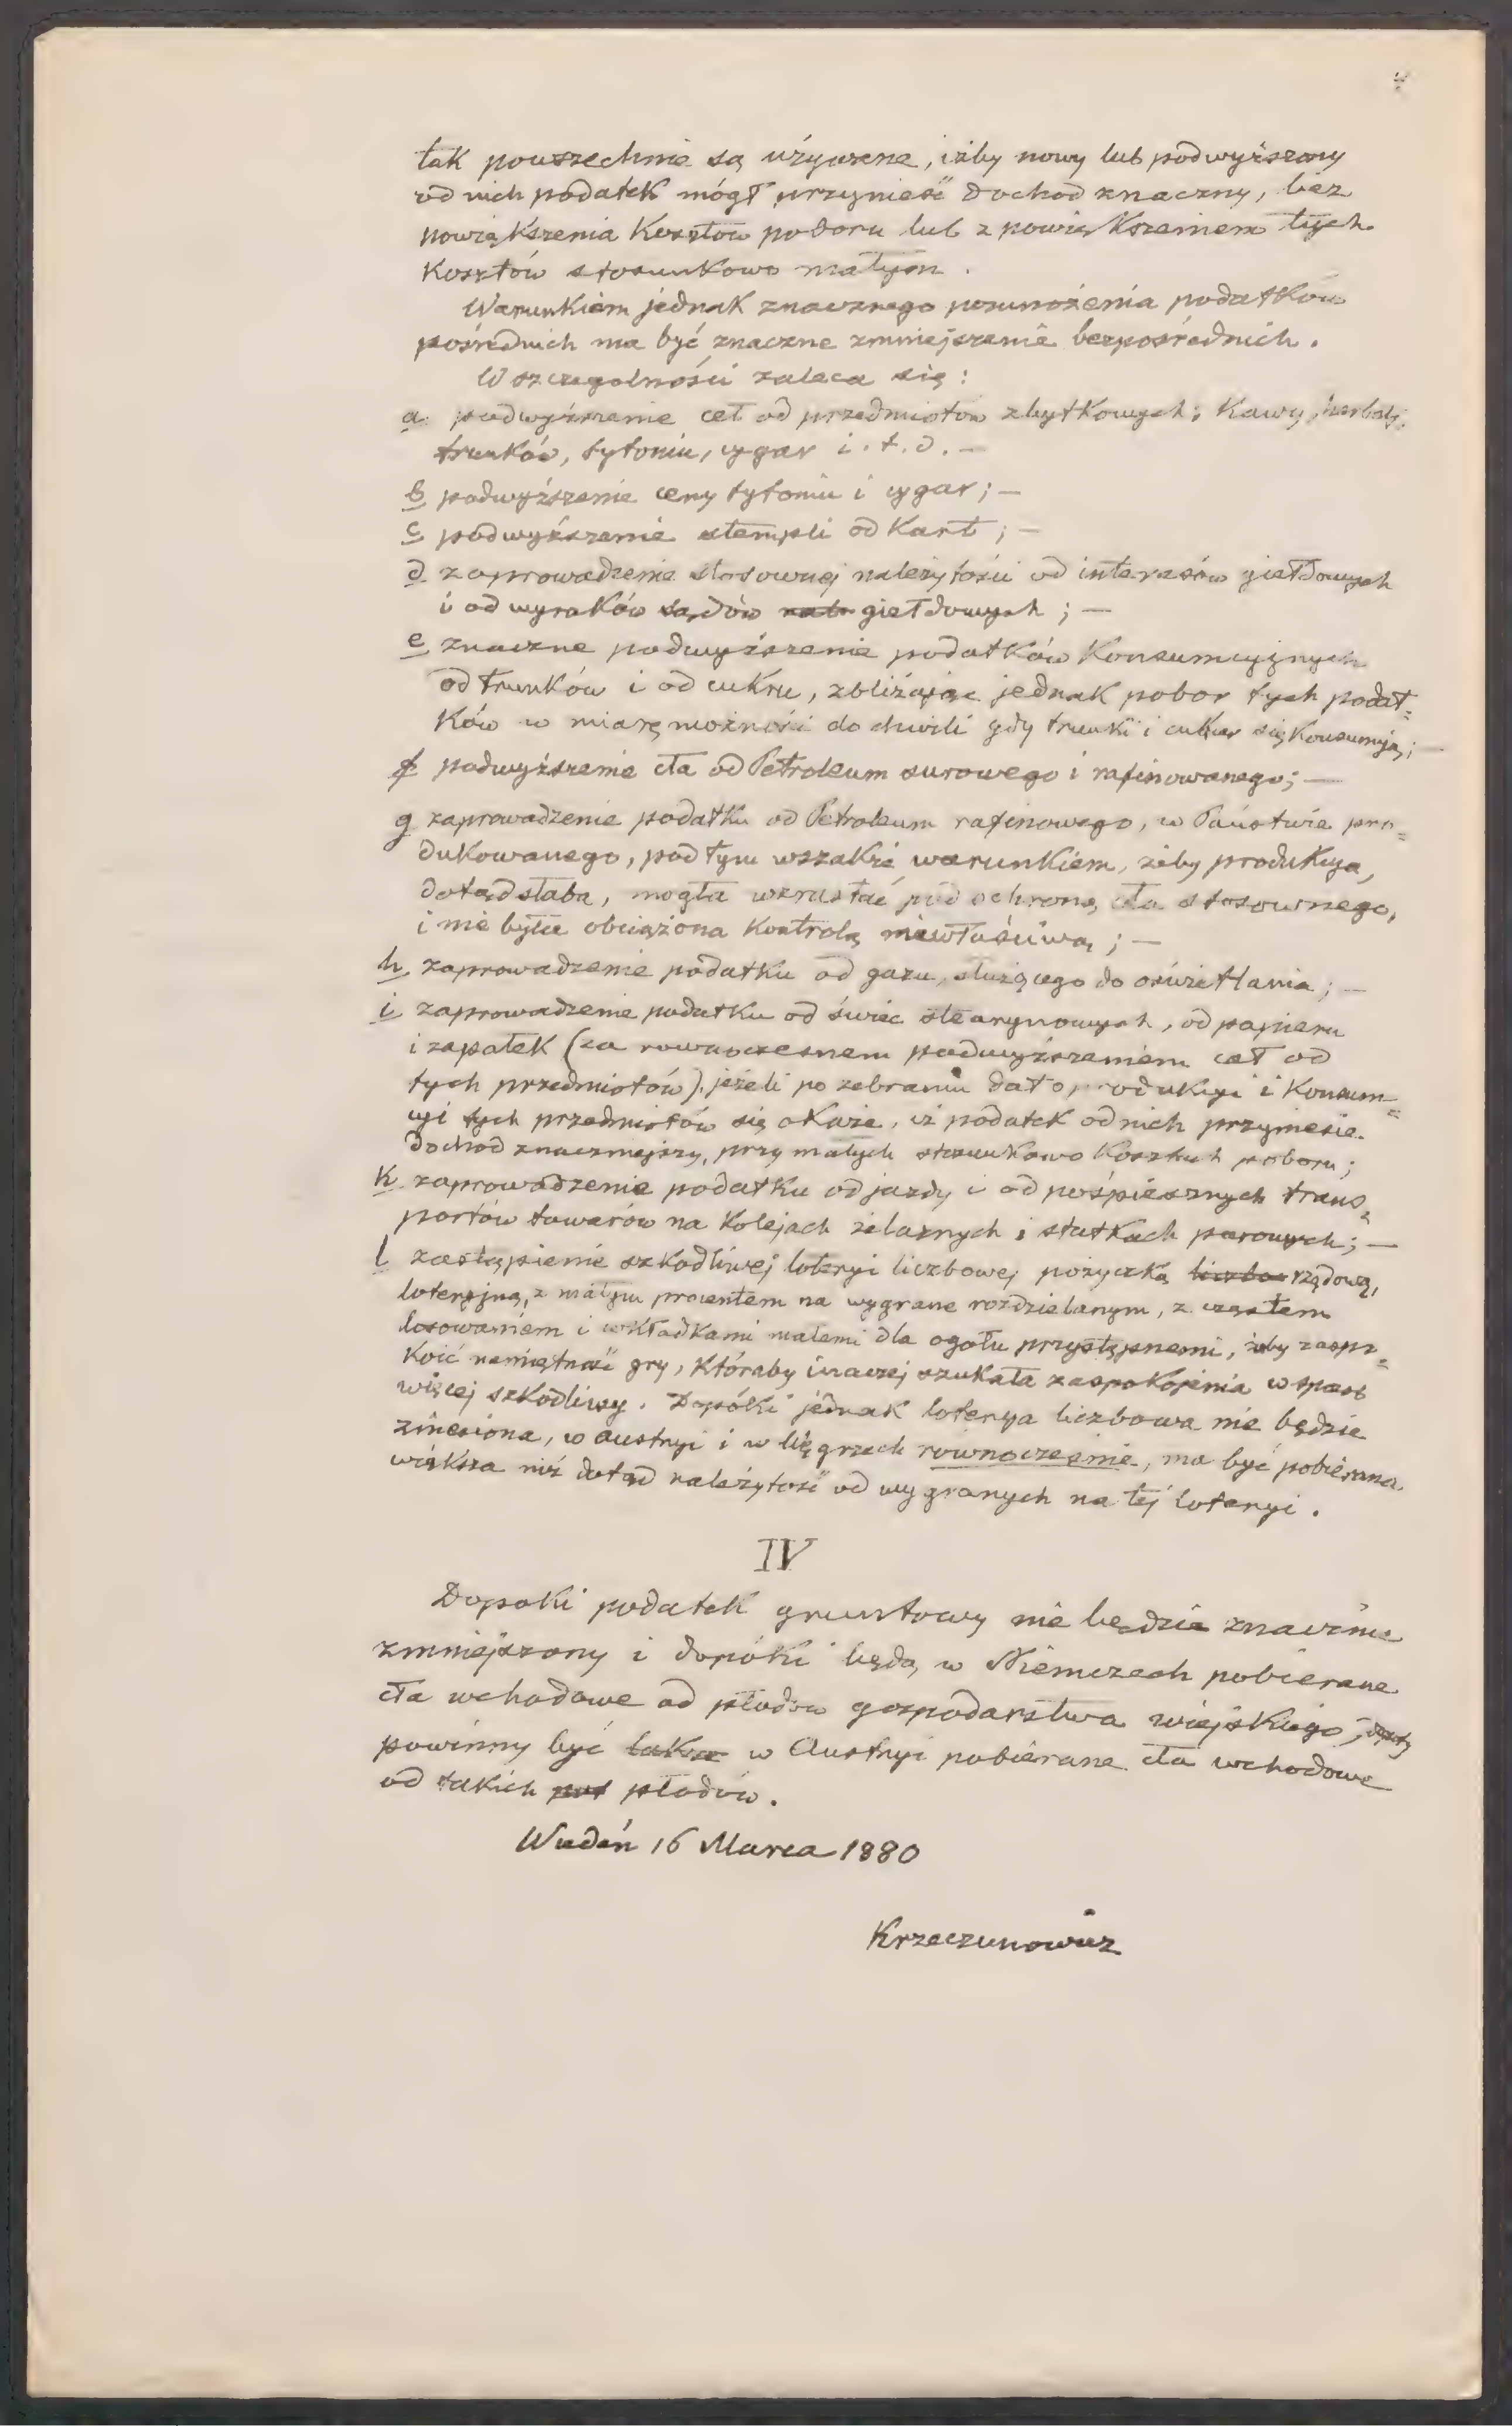 tak powszechnie są używane, iżby nowy lub podwyższony
od nich podatek mógł przynieść dochod znaczny, bez
powiększenia Kosztów poboru lub z powiększeniem tych
Kosztów stosunkowo małym.
Warunkiem jednak znacznego pomnożenia podatków
pośrednich ma być znaczne zmniejszenie bezpośrednich.
W szczegolności zaleca się:
a podwyższenie ceł od przedmiotów zbytkowych: Kawy, herbaty,
trunków, tytoniu, cygar i.t.d. —
b podwyższenie ceny tytoniu i cygar; —
c podwyższenie stempli od Kart; —
d zaprowadzenie stosownej należytości od interesów giełdowych
i od wyroków sądów giełdowych; —
e znaczne podwyższenie podatków Konsumcyjnych
od trunków i od cukru, zbliżając jednak pobor tych podat=
ków w miarę możności do chwili gdy trunki i cukier się Konsumują; —
f podwyższenie cła od Petroleum surowego i rafinowanego; —
g zaprowadzenie podatku od Petroleum rafinowego, w Państwie pro=
dukowanego, pod tym wszakże warunkiem, żeby produkcya,
dotąd słaba, mogła wzrastać pod ochroną cła stosownego,
i nie była obciążona Kontrolą niewłaściwą; —
h zaprowadzenie podatku od gazu, służącego do oświetlania; —
i zaprowadzenie podatku od świec stearynowych, od papieru
i zapałek (za rownoczesnem podwyższeniem ceł od
tych przedmiotów), jeżeli po zebraniu dat o produkcyi i Konsum=
cyi tych przedmiotów się okaże, iż podatek od nich przyniesie
dochod znaczniejszy, przy małych stosunkowo Kosztach poboru;
k zaprowadzenie podatku od jazdy i od pośpiesznych trans=
portów towarów na Kolejach żelaznych i statkach parowych; —
l zastąpienie szkodliwej loteryi liczbowej pożyczką liczbo rządową,
loteryjną, z małym procentem na wygrane rozdzielanym, z częstem
losowaniem i wkładkami małemi dla ogołu przystępnemi, żeby zaspo=
koić namiętność gry, któraby inaczej szukała zaspokojenia w sposob
więcej szkodliwy. Dopóki jednak loterya liczbowa nie będzie
zniesiona, w Austryi i w Węgrzech rownocześnie, ma być pobierana
większa niż dotąd należytość od wygranych na tej loteryi.
IV
Dopoki podatek gruntowy nie będzie znacznie
zmniejszony i dopóki będą w Niemczech pobierane
cła wchodowe od płodów gospodarstwa wiejskiego, dopoty
powinny być także w Austryi pobierane cła wchodowe
od takich płodów.
Wiedeń 16 Marca 1880
Krzeczunowicz